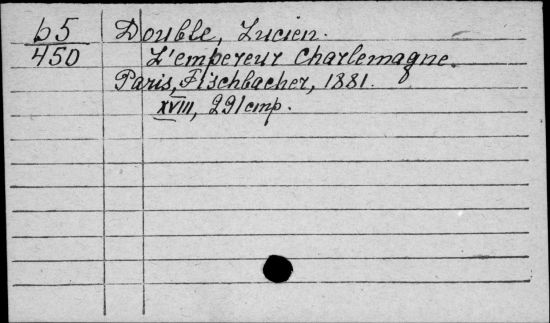 65 Double, Lucien.
450 L'empereur Charlemagne.
Paris, Fischbacher, 1881.
XVIII, 291 cmp.